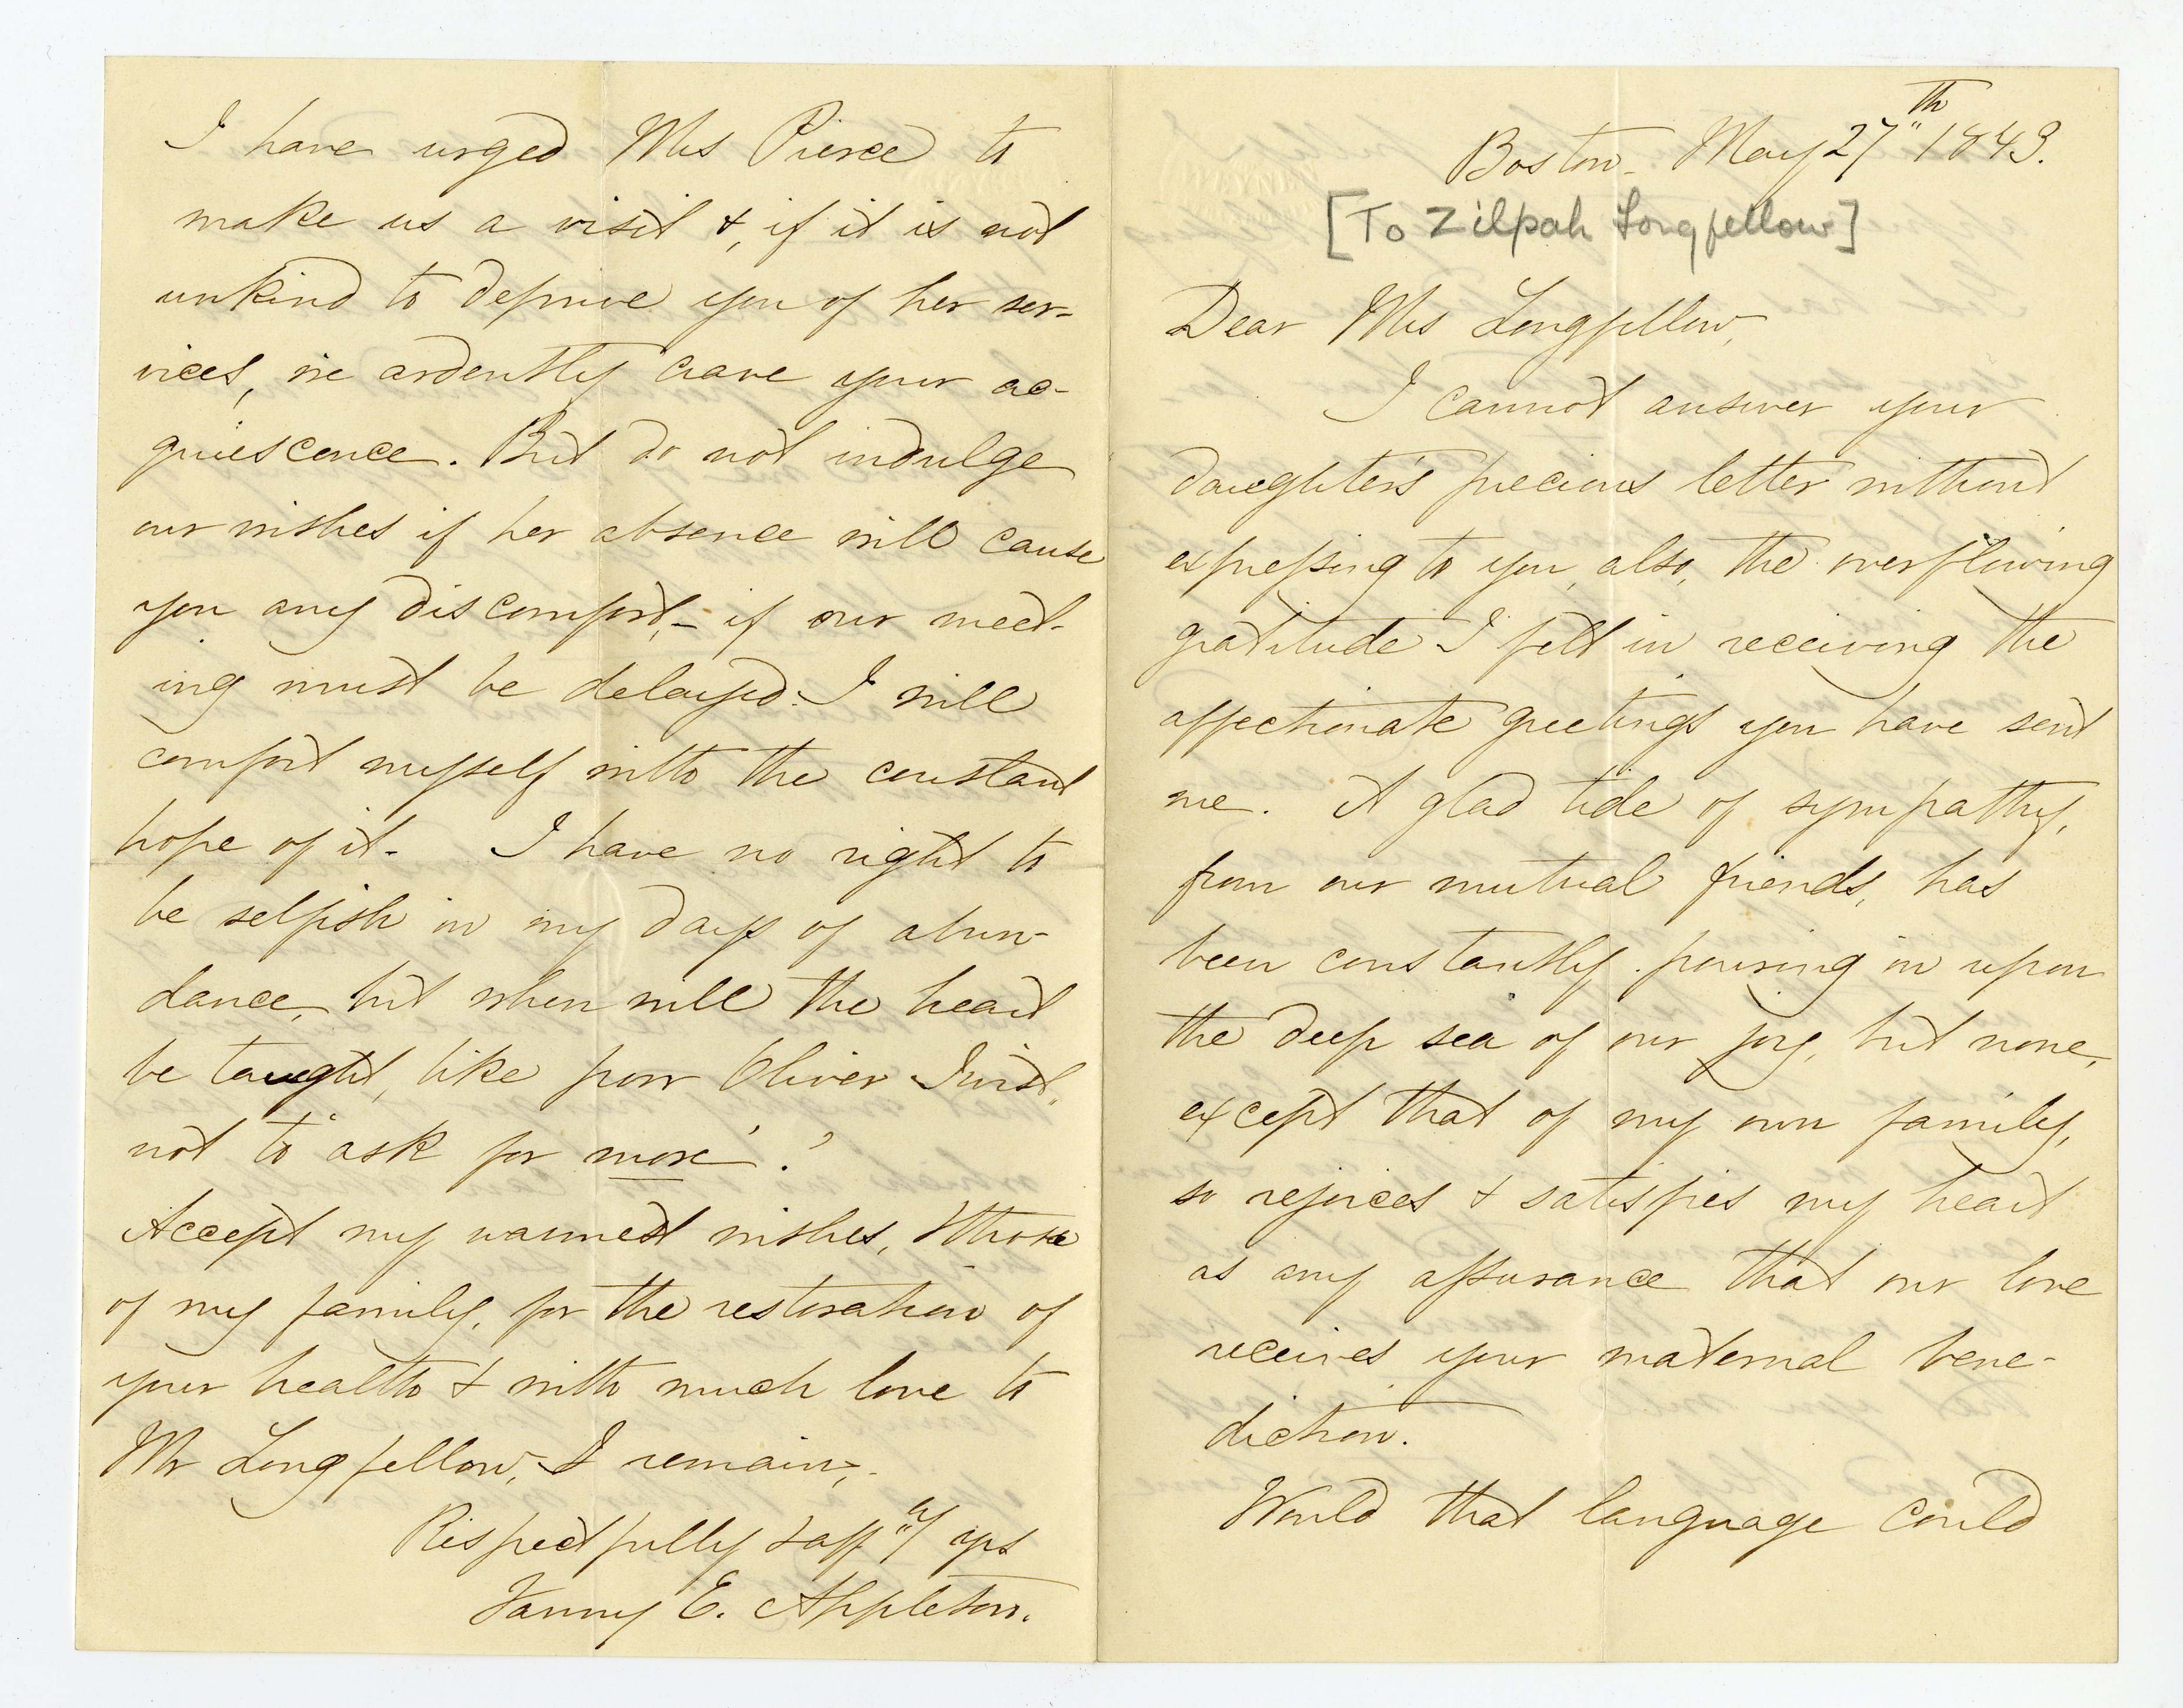 Boston - May 27"th 1843.
[To Zilpah Longfellow]
Dear Mrs Longfellow,
I cannot answer your
daughter's precious letter without
expressing to you, also, the overflowing
gratitude I felt in receiving the
affectionate greetings you have sent
me. A glad tide of sympathy,
from our mutual friends, has
been constantly pouring in upon
the deep sea of our joy, but none,
except that of my own family,
so rejoices & satisfies my heart
as any assurance that our love
receives your maternal bene-
diction.
Would that language could
I have urged Mrs Pierce to
make us a visit &, if it is not
unkind to deprive you of her ser-
vices, we ardently crave your ac-
quiescence. But do not indulge
our wishes if her absence will cause
you any discomfort, - if our meet-
ing must be delayed I will
comfort myself with the constant
hope of it - I have no right to
be selfish in my days of abun-
dance, but when will the heart
be taught, like poor Oliver Twist,
not to "ask for more"?
Accept my warmest wishes, & those
of my family, for the restoration of
your health & with much love to
Mr Longfellow, I remain,
Respectfully & aff"y yrs
Fanny E. Appleton.